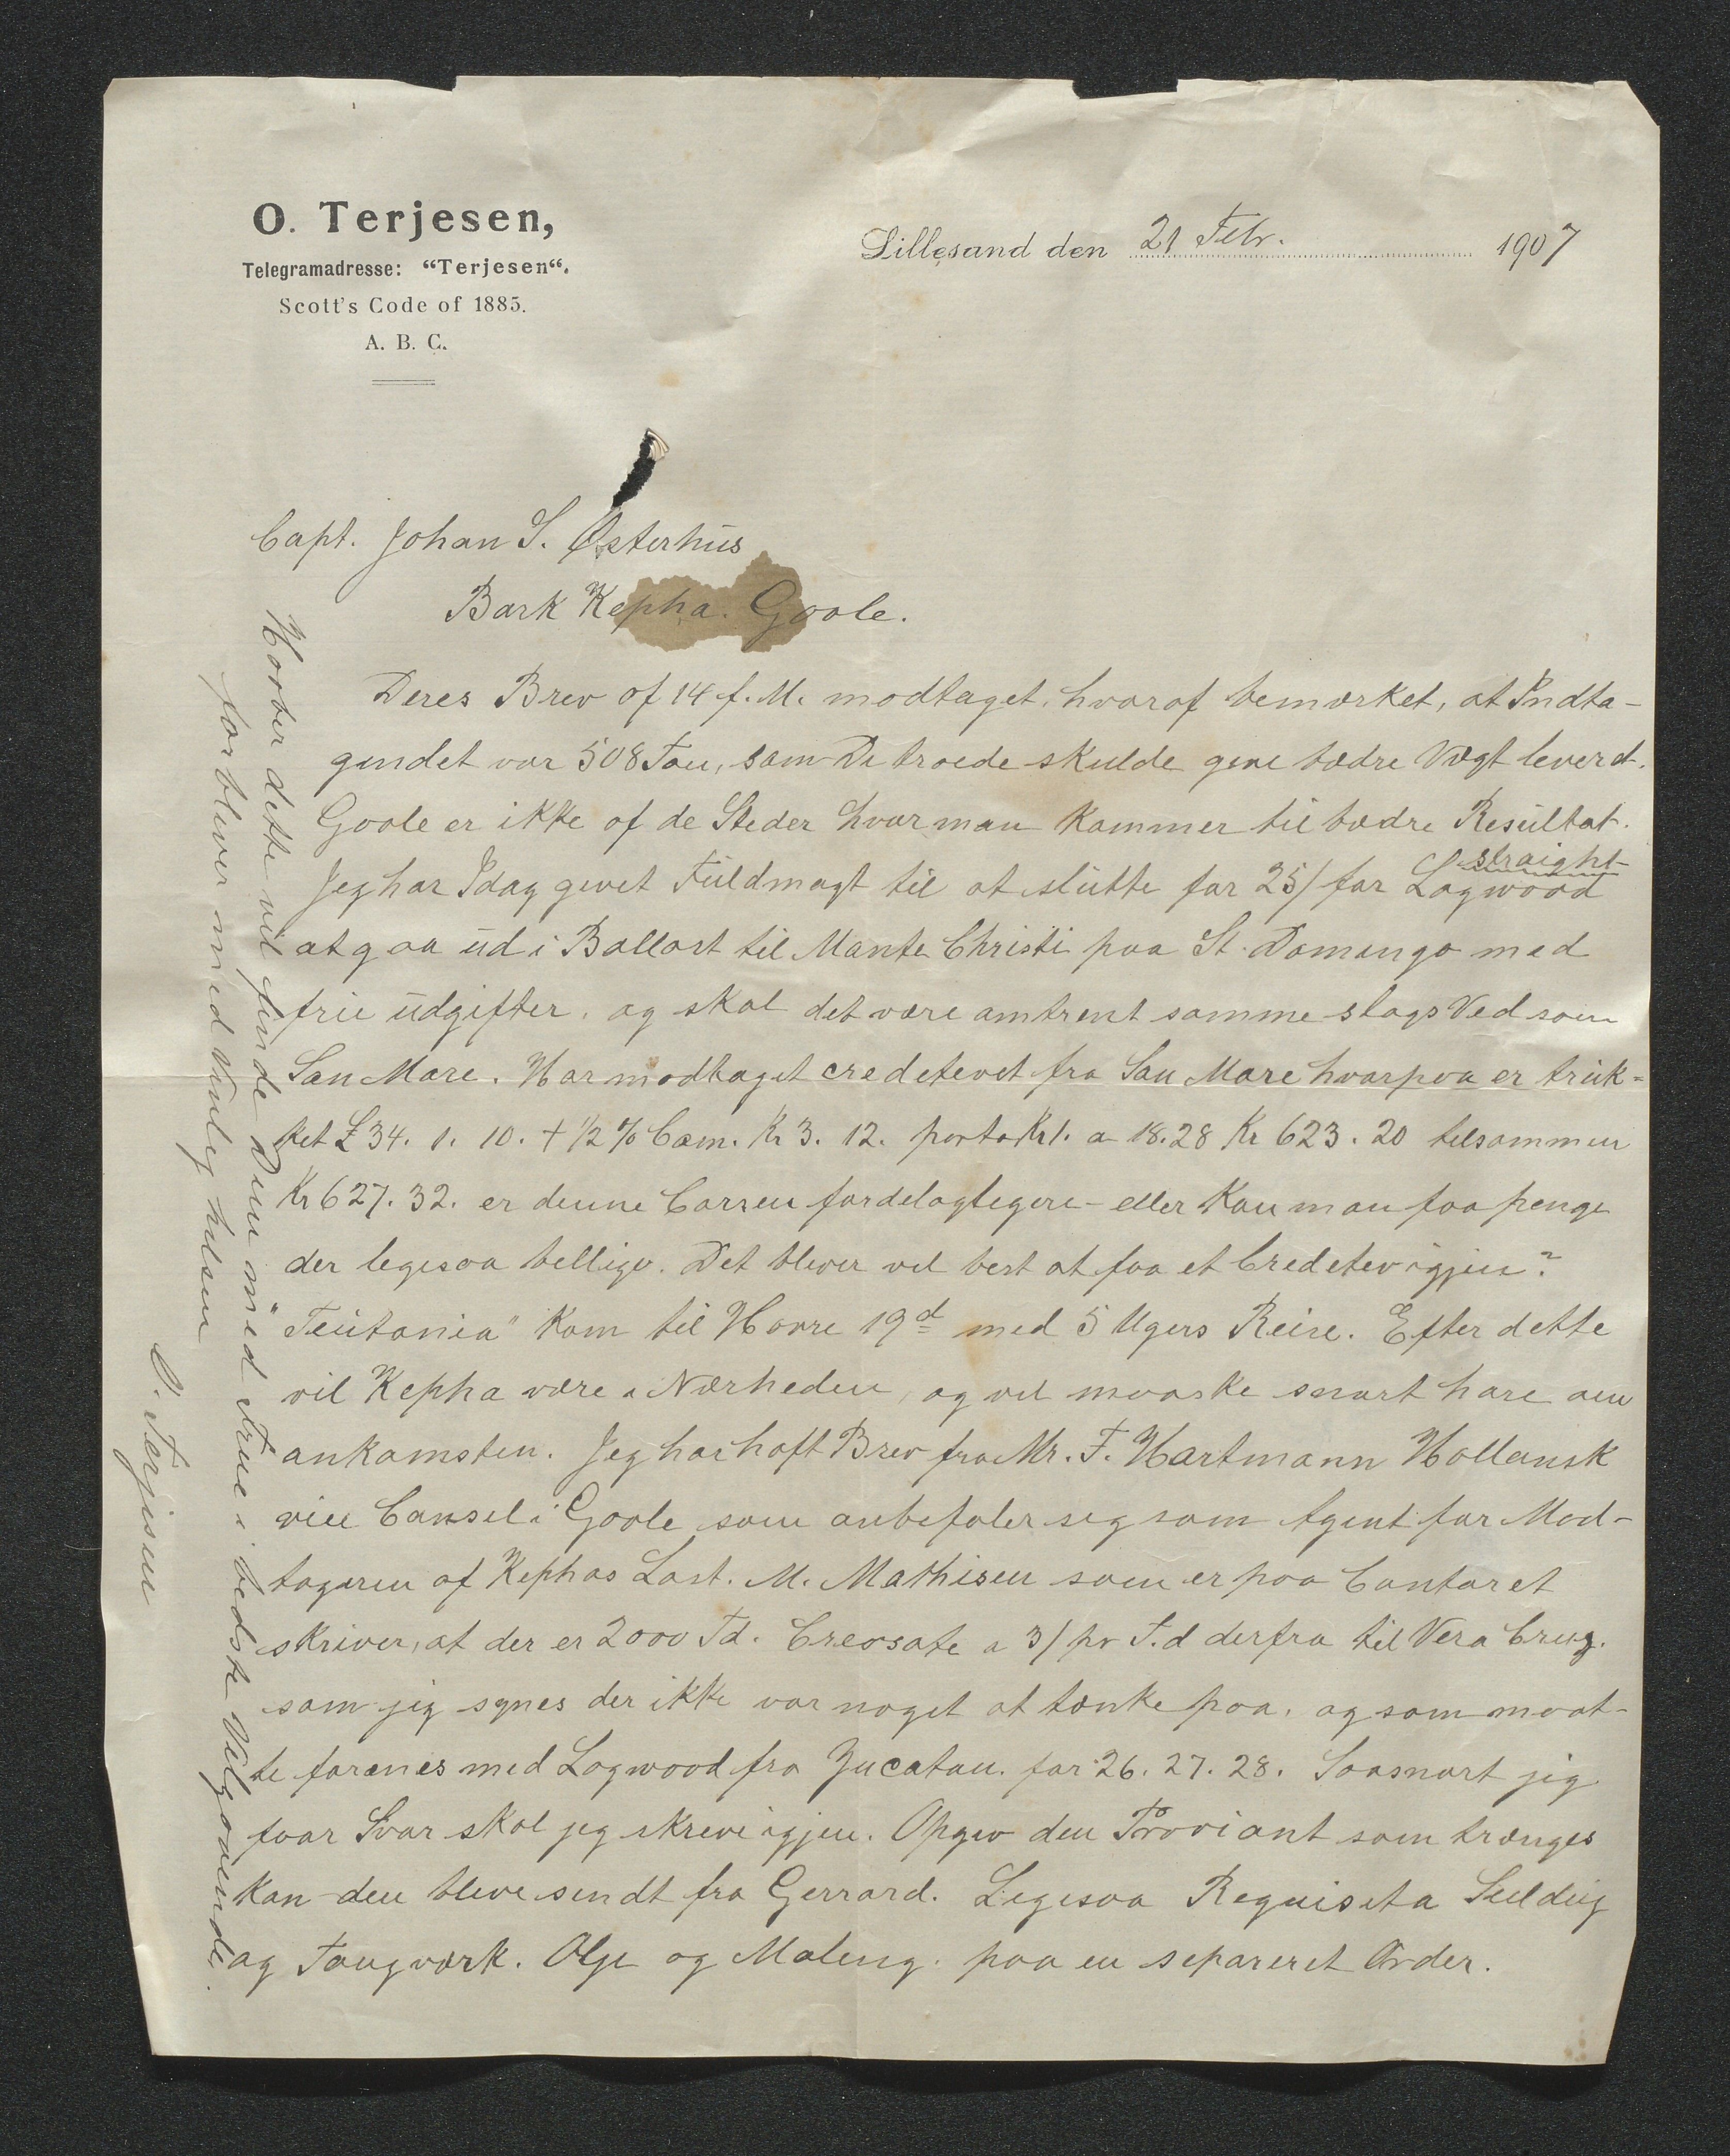 O. Terjesen,
Telegramadresse: “Terjesen“.
Scott's Code of 1885.
A. B. C.
Lillesand den 21 Febr. 1907
Capt. Johan S. Østerhus
Bark Kepha. Goole.
Deres Brev af 14 f. M. modtaget, hvoraf bemærket, at Indta-
gendet var 508 Ton, som De troede skulde give bedre Vægt leveret.
Goole er ikke af de Steder hvor man kommer til bedre Resultat.
straight
Jeg har Idag givet Fuldmagt til at slutte for 25/ for Logwood
at gaa ud i Ballast til Monte Christi paa St. Domingo med
frie udgifter, og skal det være omtrent samme slags Ved som
San Mare. Har modtaget creditevet fra San Mare hvorpaa er truk-
ket £ 34. 1. 10. + ½ % Com. Kr 3. 12. porto Kr 1. a 18.28 Kr 623. 20 tilsammen
Kr 627. 32. er denne Corsen fordelagtigere eller kan man faa penge
der ligesaa billige. Det bliver vel best at faa et Creditev igjen?
"Teutonia" kom til Havre 19d med 5 Ugers Reise. Efter dette
vil Kepha være i Nærheden, og vil maaske snart høre om
ankomsten. Jeg har haft Brev fra Mr. F. Hartmann Hollansk
vice Consul i Goole som anbefaler sig som Agent for Mod-
tageren af Kephas Last. M. Mathisen som er paa Contoret
skriver, at der er 2000 Td. Creosote a 3/ pr T.d derfra til Vera Cruz.
som jeg synes der ikke var noget at tænke paa, og som maat-
te forenes med Logwood fra Yucatan. for 26. 27. 28. Saasnart jeg
faar Svar skal jeg skrive igjen. Opgiv den Proviant som trænges
kan den blive sendt fra Gerrard. Ligesaa Requisita Seildug
og Taugværk. Olje og Maling. paa en separeret Order.
Haaber dette vil finde Dem med Frue i bedste Velgaaende.
forbliver med Venlig hilsen
O. Terjesen